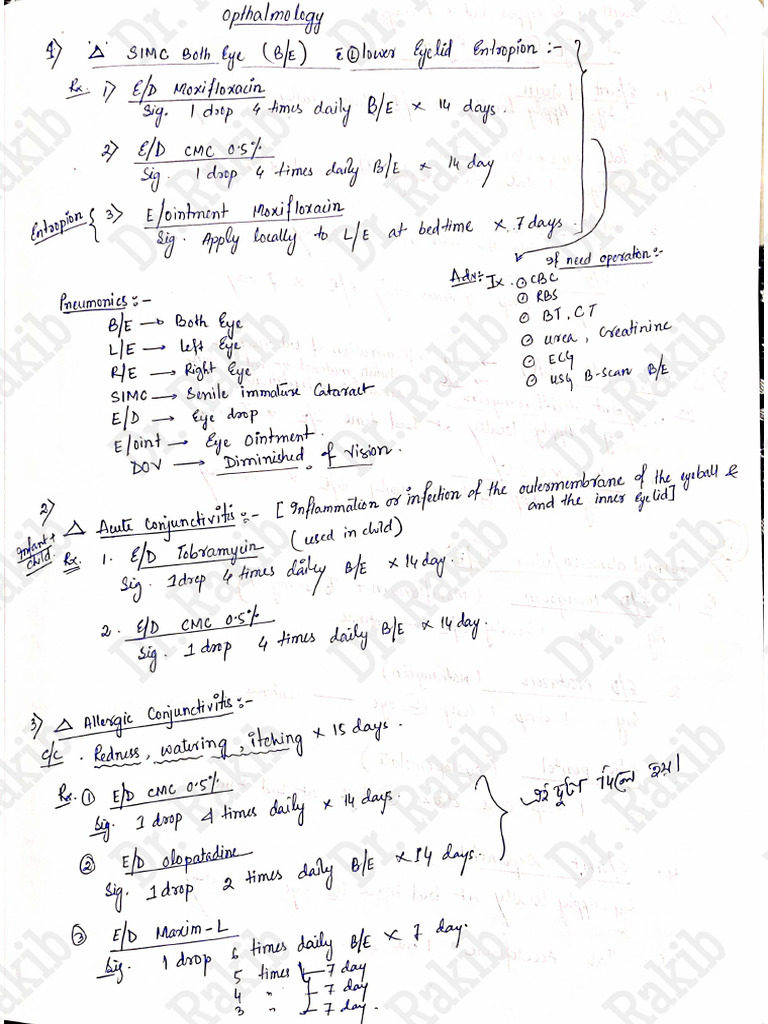 Opthalmology
1) Δ SIMC Both Eye (B/E) c̄ (L) lower Eyelid Entropion :-
Rx. 1) E/D Moxifloxacin
Sig. 1 drop 4 times daily B/E × 14 days.
2) E/D CMC 0.5%
Sig. 1 drop 4 times daily B/E × 14 day
Entropion { 3) E/ointment Moxifloxacin
Sig. Apply locally to L/E at bedtime × 7 days.
If need operation:-
Adv:- Ix. ⊙ CBC
⊙ RBS
⊙ BT, CT
⊙ urea, Creatinine
⊙ ECG
⊙ USG B-Scan B/E
Pneumonics :-
B/E → Both Eye
L/E → Left Eye
R/E → Right Eye
SIMC → Senile immature Cataract
E/D → Eye drop
E/oint → Eye Ointment.
DOV → Diminished of Vision.
2) Δ Acute Conjunctivitis :- [Inflammation or infection of the outermembrane of the eyeball &
and the inner Eyelid]
Infant + child Rx. 1. E/D Tobramycin (used in child)
Sig. 1drop 4 times daily B/E × 14 day.
2. E/D CMC 0.5%
Sig. 1 drop 4 times daily B/E × 14 day.
3) Δ Allergic Conjunctivitis :-
C/C . Redness, watering, itching × 15 days.
Rx. ① E/D CMC 0.5%
Sig. 1 drop 4 times daily × 14 days.
② E/D olopatadine
Sig. 1 drop 2 times daily B/E × 14 days.
এই দুটা দিলে হয়।
③ E/D Maxim-L
Sig. 1 drop 6 times daily B/E × 7 day.
5 times — 7 day
4 " — 7 day
3 " — 7 day.
Dr. Rakib